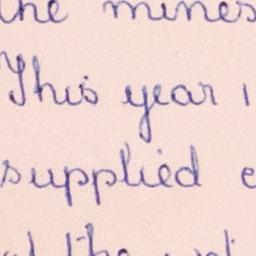 the mines
This year
supplied